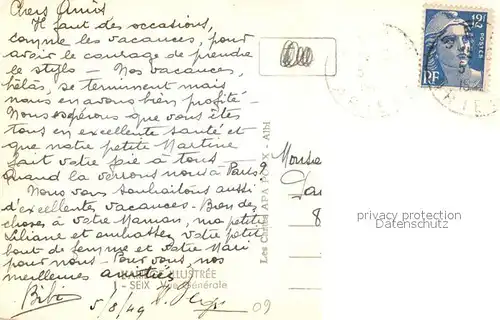 Chers Amis
Il faut des occasions,
comme les vacances, pour
avoir le courage de prendre
le stylo – Nos vacances,
hélas, se terminent mais
nous en avons bien profité –
Nous espérons que vous êtes
tous en excellente santé et
que notre petite Martine
fait votre joie à tous –
Quand la verrons nous à Paris?
Nous vous souhaitons aussi
d'excellentes vacances – Bien des
choses à votre Maman, ma petite
Liliane et embrassez votre petit
bout de femme et votre Mari
pour nous – Pour vous, nos
meilleures amitiés
Bibi
5/8/49
09
CARTE ILLUSTRÉE
1 - SEIX - Vue Générale
Les Cartes APA POUX - Albi
12F
POSTES
RF
Monsie
8
privacy protection
Datenschutz